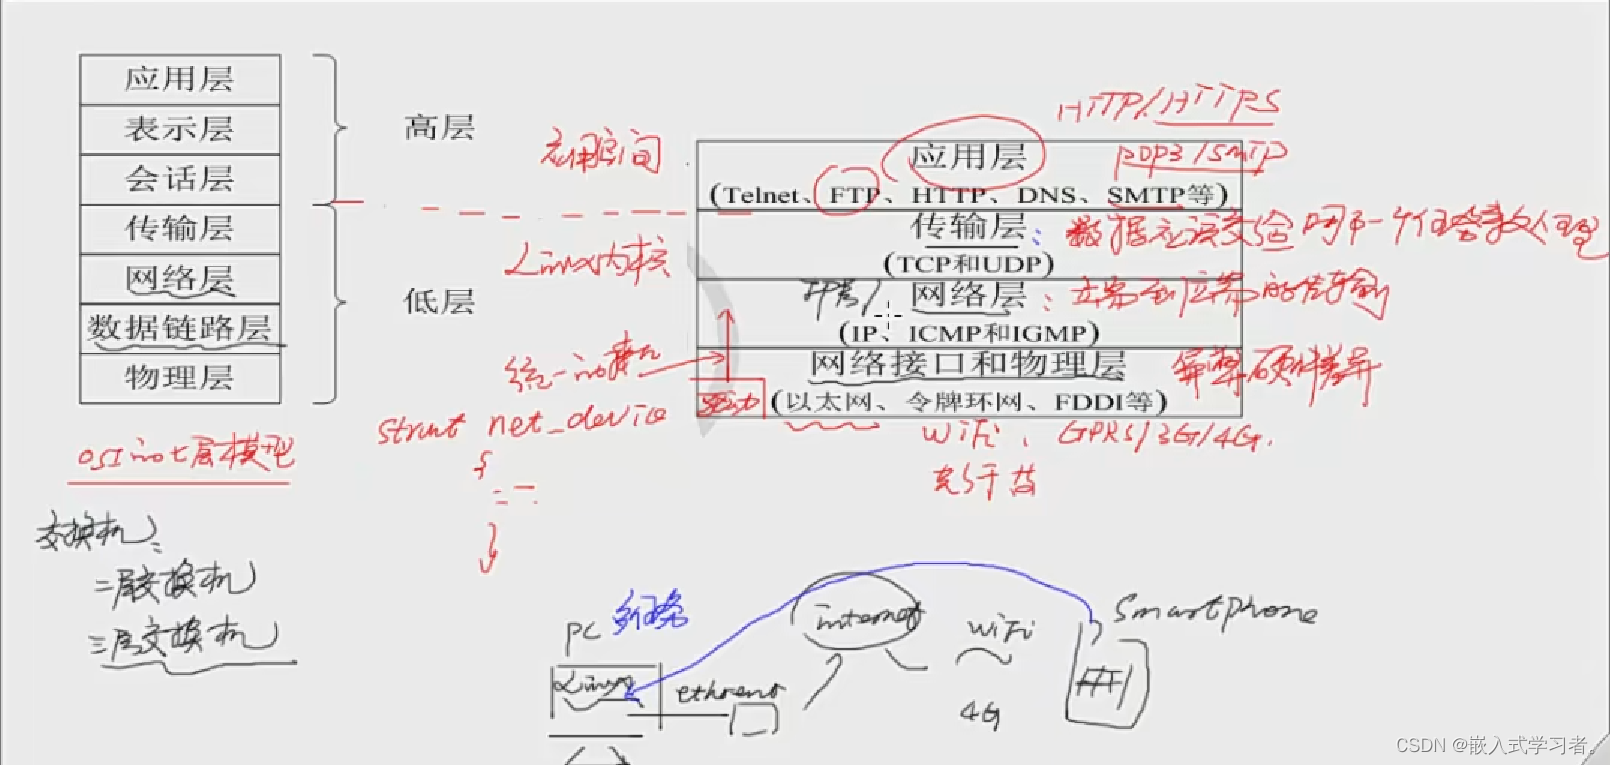 应用层
表示层
会话层
传输层
网络层
数据链路层
物理层
高层
低层
OSI的七层模型
应用空间
Linux内核
统一的
struct net_device
{
}
HTTP/HTTPS
POP3/SMTP
应用层
(Telnet、FTP、HTTP、DNS、SMTP等)
传输层：数据应该交给哪一个任务来处理
(TCP和UDP)
网络层：
(IP、ICMP和IGMP)
网络接口和物理层
屏蔽硬件差异
驱动
(以太网、令牌环网、FDDI等)
WiFi、GPRS/3G/4G.
交换机：
二层交换机
三层交换机
PC
多任务
Linux
internet
WiFi
4G
Smartphone
CSDN @嵌入式学习者。